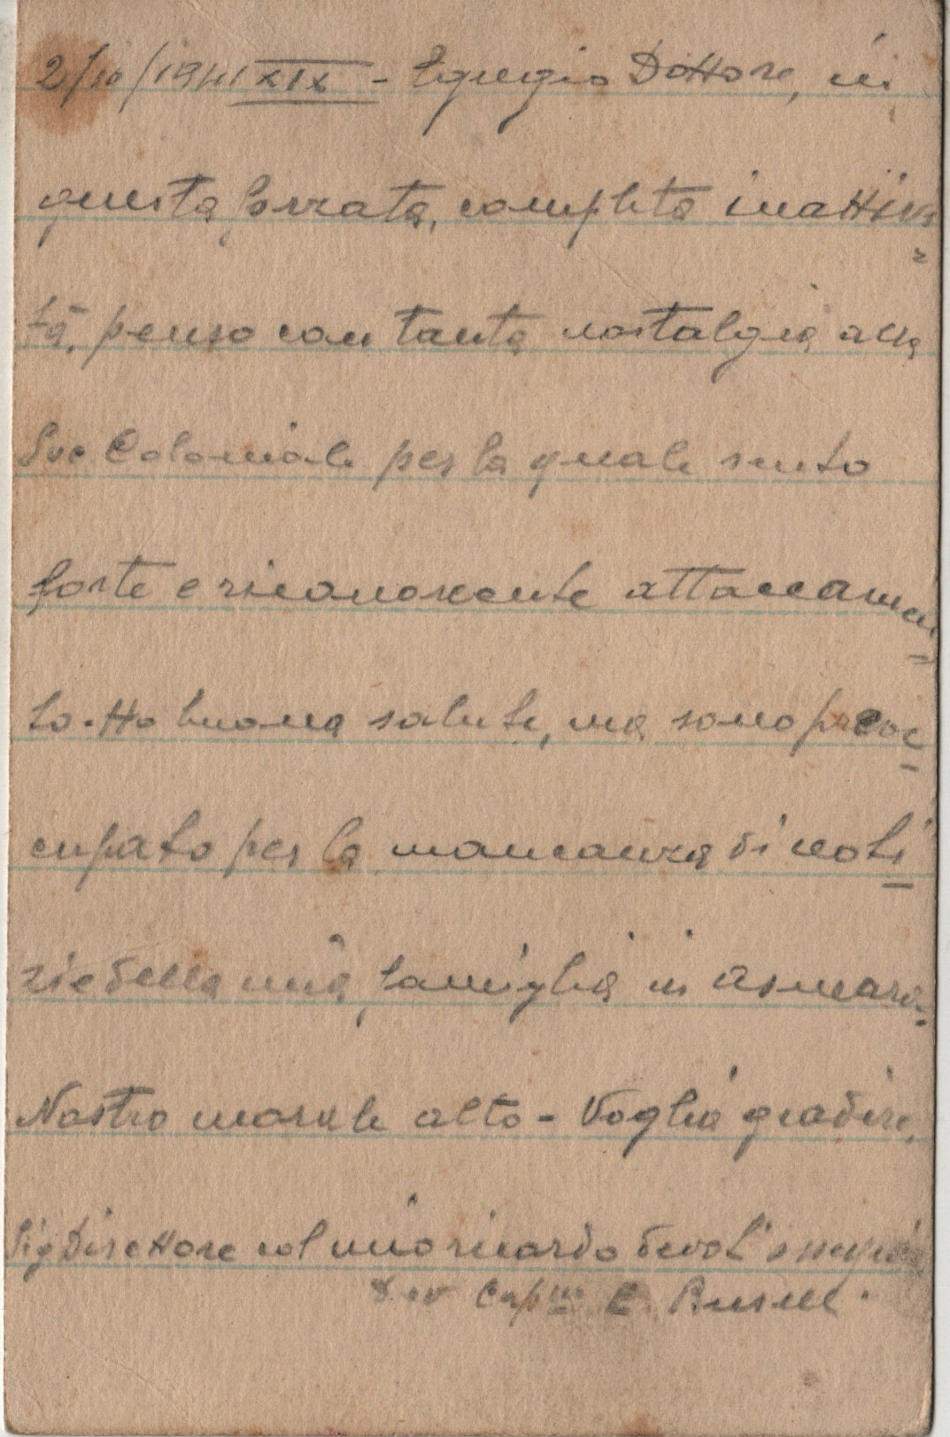 2/10/1941 XIX - Egregio Dottore, in
questa forzata, completa inattivi
tà, penso con tanta nostalgia alla
Soc Coloniale per la quale sento
forte e riconoscente attaccamen
to. Ho buona salute, ma sono preoc
cupato per la mancanza di noti
zie della mia famiglia in Asmara.
Nostro morale alto - Voglia gradire,
Sig Direttore col mio ricordo devoti ossequi
Dev Cap.no E.